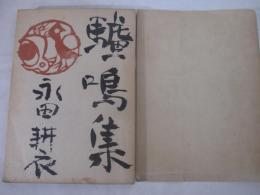 驥鳴集
永田耕衣